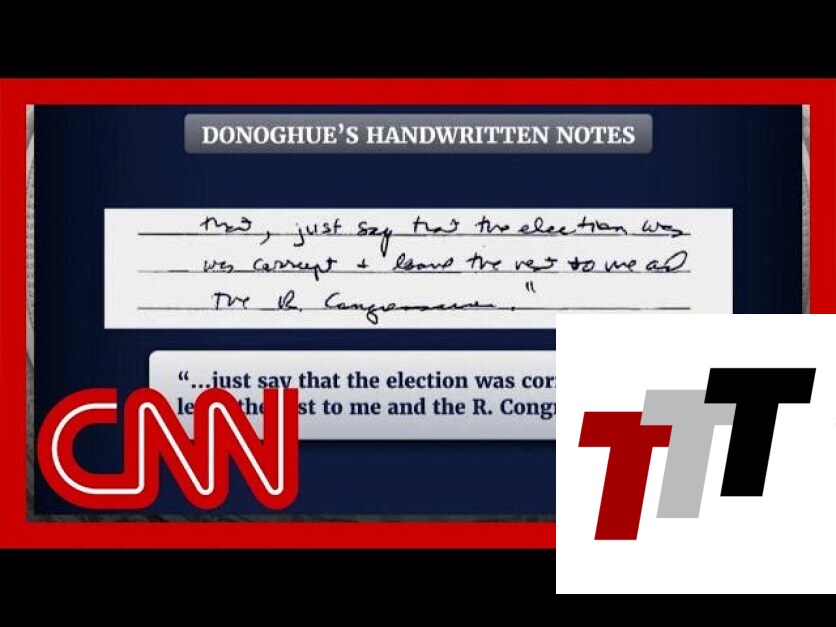 DONOGHUE’S HANDWRITTEN NOTES
that, just say that the election was
was corrupt + leave the rest to me and
the R. Congressmen."
“...just say that the election was cor
to me and the R. Cong
CNN
TTT